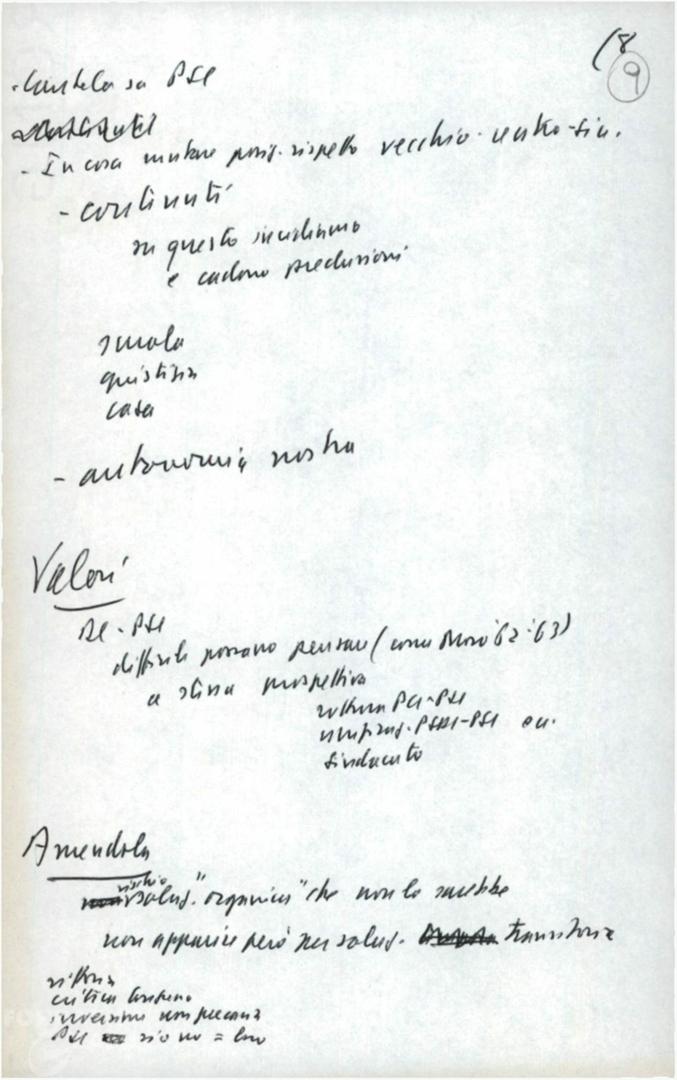 (8
9
- Cautela su PSI
- In cosa mutare posiz. rispetto vecchio centro-sin.
- contenuti
su questo incidiamo
e cadono preclusioni
scuola
giustizia
casa
- autonomia nostra
Valori
DC-PSI
difficile possano pensare (come Moro '62-'63)
a stessa prospettiva
rottura PCI-PSI
unificaz. PSDI-PSI
sindacato
Amendola
rischio
soluz. "organica" che non lo sarebbe
non apparire però per soluz. transitoria
critica
inversione
PSI